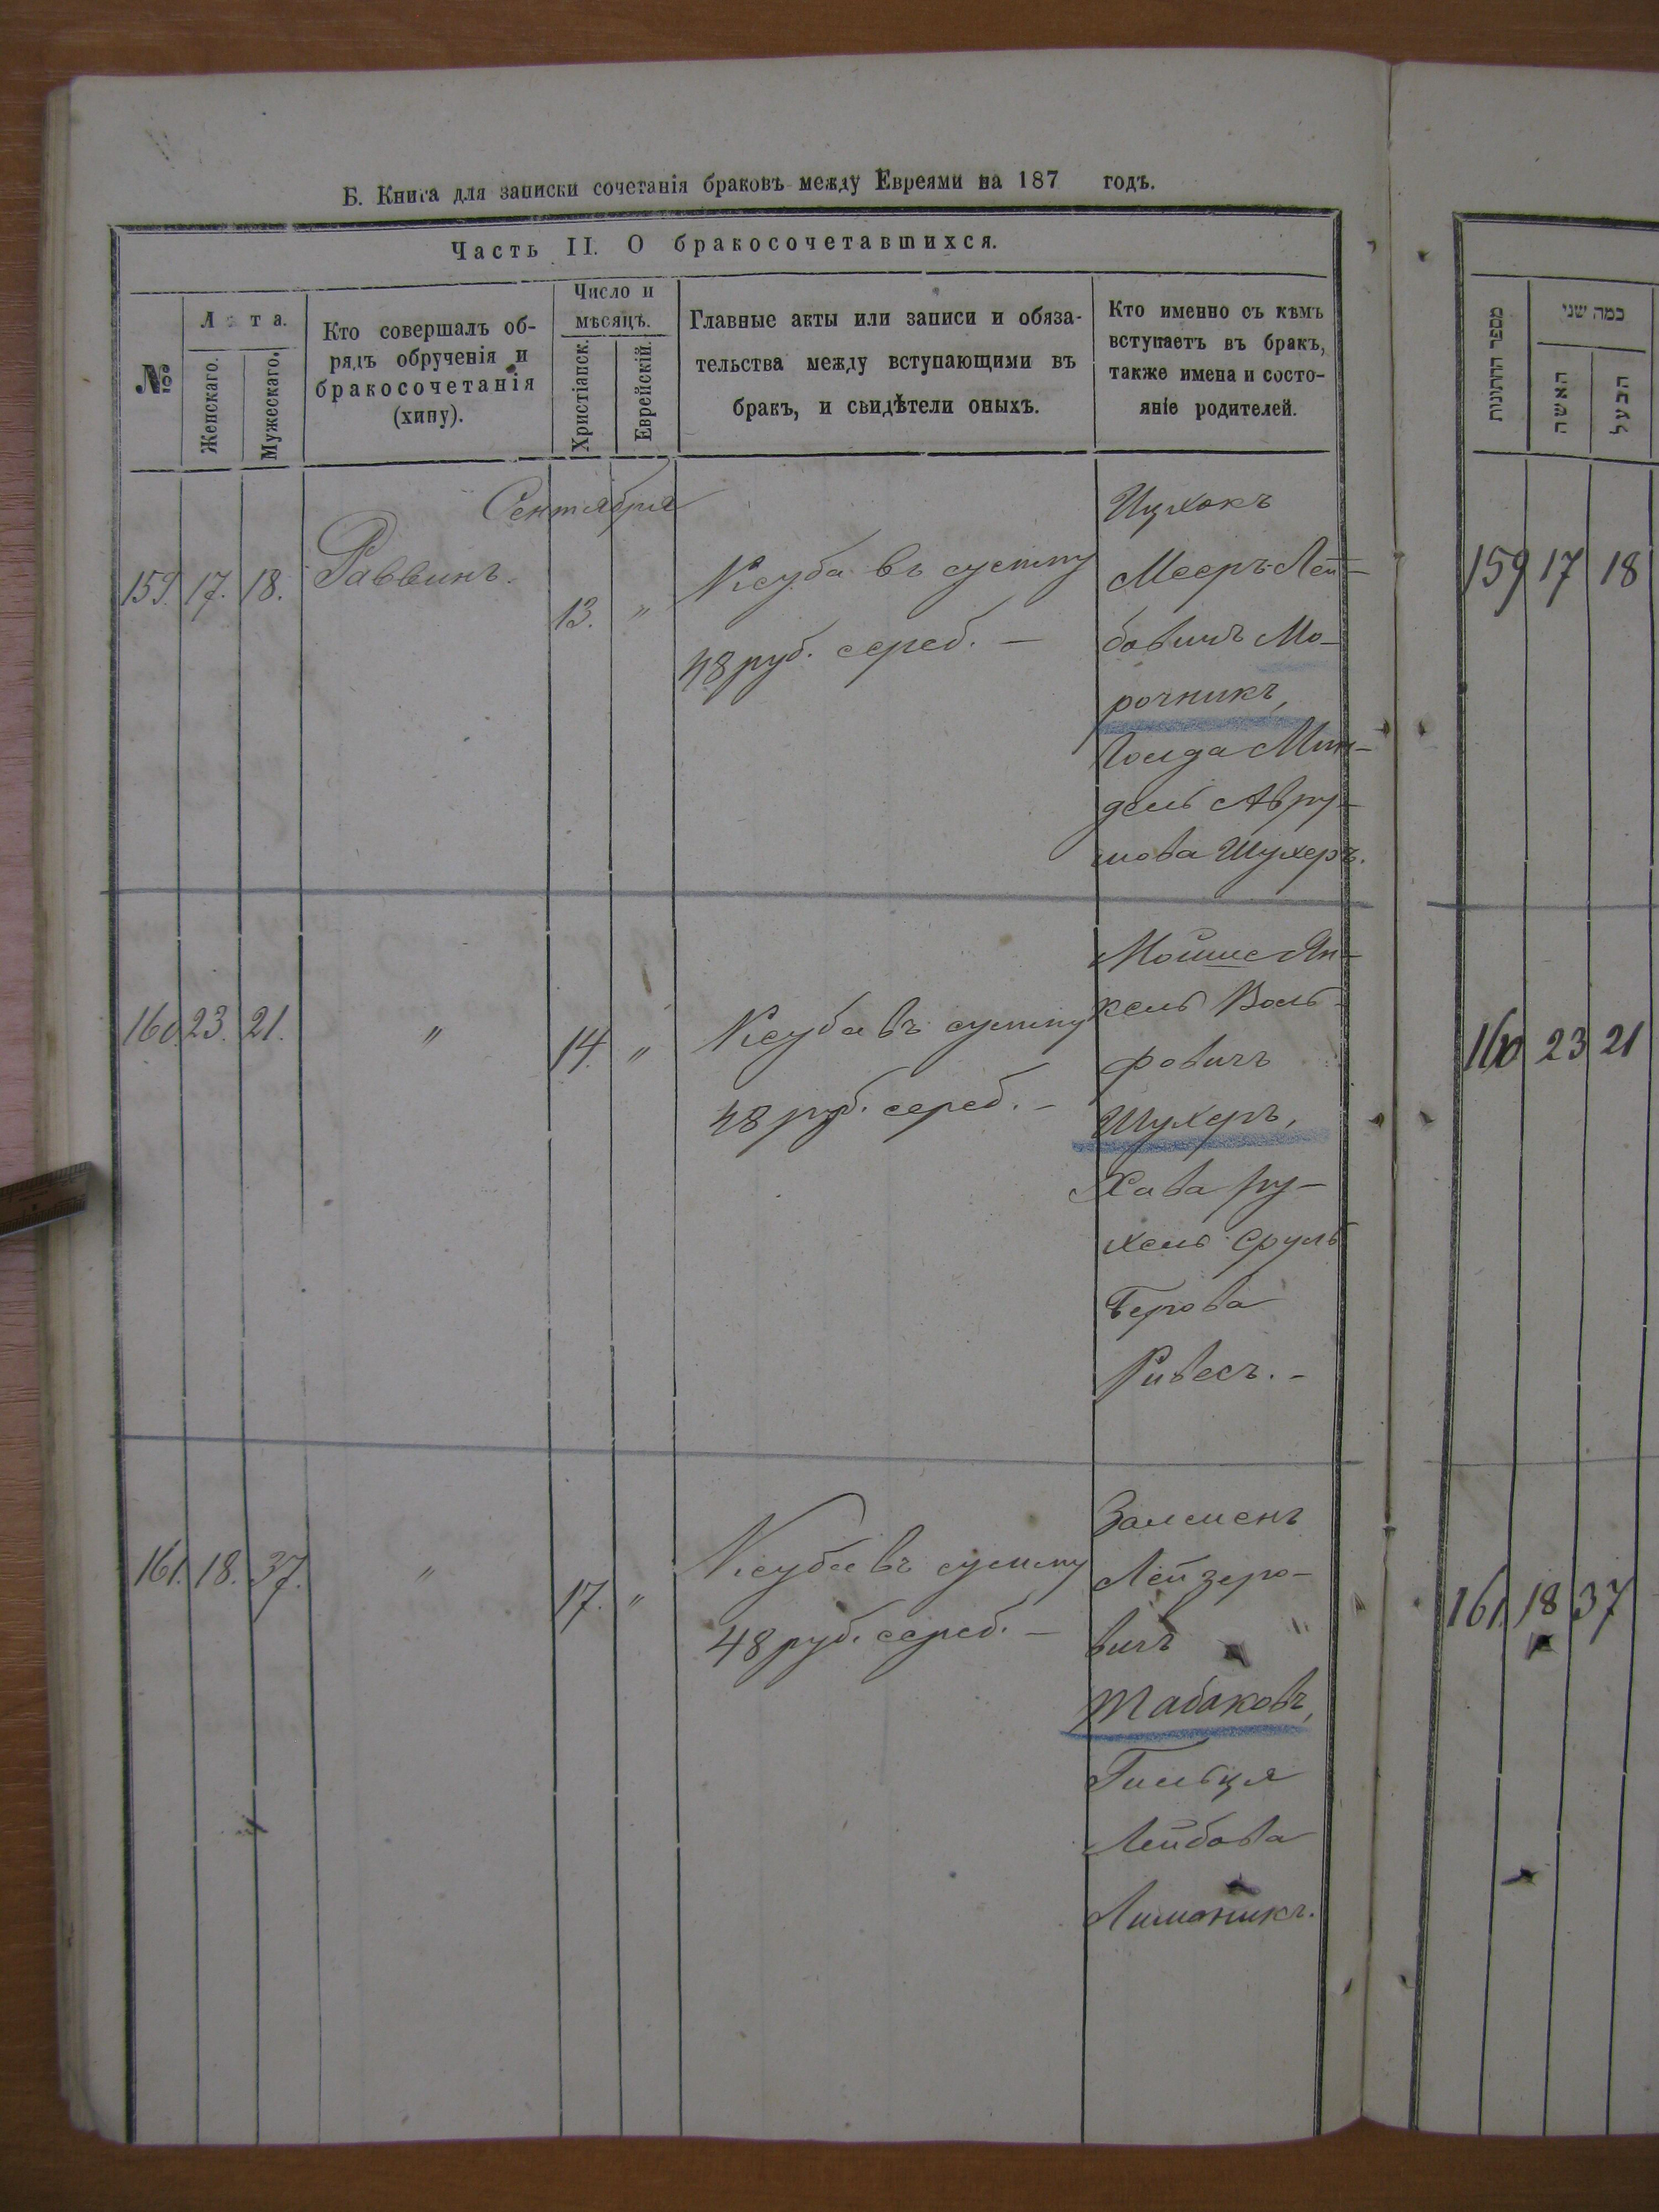 Б. Книга для записки сочетанія браковъ между Евреями на 187 годъ.
Часть II. О бракосочетавшихся.
№
Лѣта.
Женскаго.
Мужескаго.
Кто совершалъ об-
рядъ обрученія и
бракосочетанія
(хипу).
Число и
мѣсяцъ.
Христіанск.
Еврейскій.
Главные акты или записи и обяза-
тельства между вступающими въ
бракъ, и свидѣтели оныхъ.
Кто именно съ кѣмъ
вступаетъ въ бракъ,
также имена и состо-
яніе родителей.
Сентября
159. 17. 18. Раввинъ. 13. "
Ксуба въ сумму
48 руб. сереб. —
Ицхокъ
Мееръ Лей-
бовичъ Мо-
рочникъ,
Голда Мин-
дель Авру-
мова Шухеръ.
160. 23. 21. " 14. "
Ксуба въ сумму
48 руб. сереб. —
Мойше Ян-
кель Воль-
фовичъ
Шухеръ,
Хава Ру-
хель Сруль
Берова
Ривесъ. —
161. 18. 37. " 17. "
Ксуба въ сумму
48 руб. сереб. —
Залменъ
Лейзеро-
вичъ
Табаковъ,
Гильця
Лейбова
Лимоникъ.
מספר החתונות
כמה שני
האשה
הבעל
159 17 18
160 23 21
161. 18 37